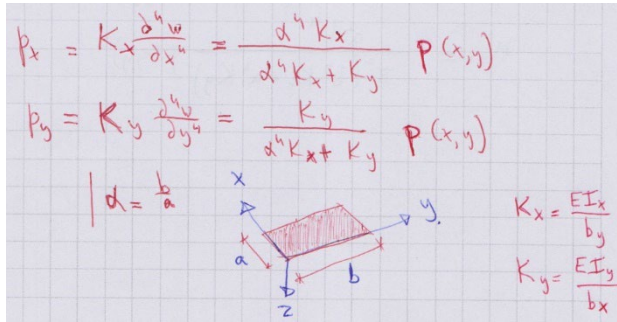 p_x = K_x ∂⁴w/∂x⁴ = α⁴K_x / (α⁴K_x + K_y) p(x,y)
p_y = K_y ∂⁴w/∂y⁴ = K_y / (α⁴K_x + K_y) p(x,y)
| α = b/a
x
y
a
b
z
K_x = EI_x/b_y
K_y = EI_y/b_x